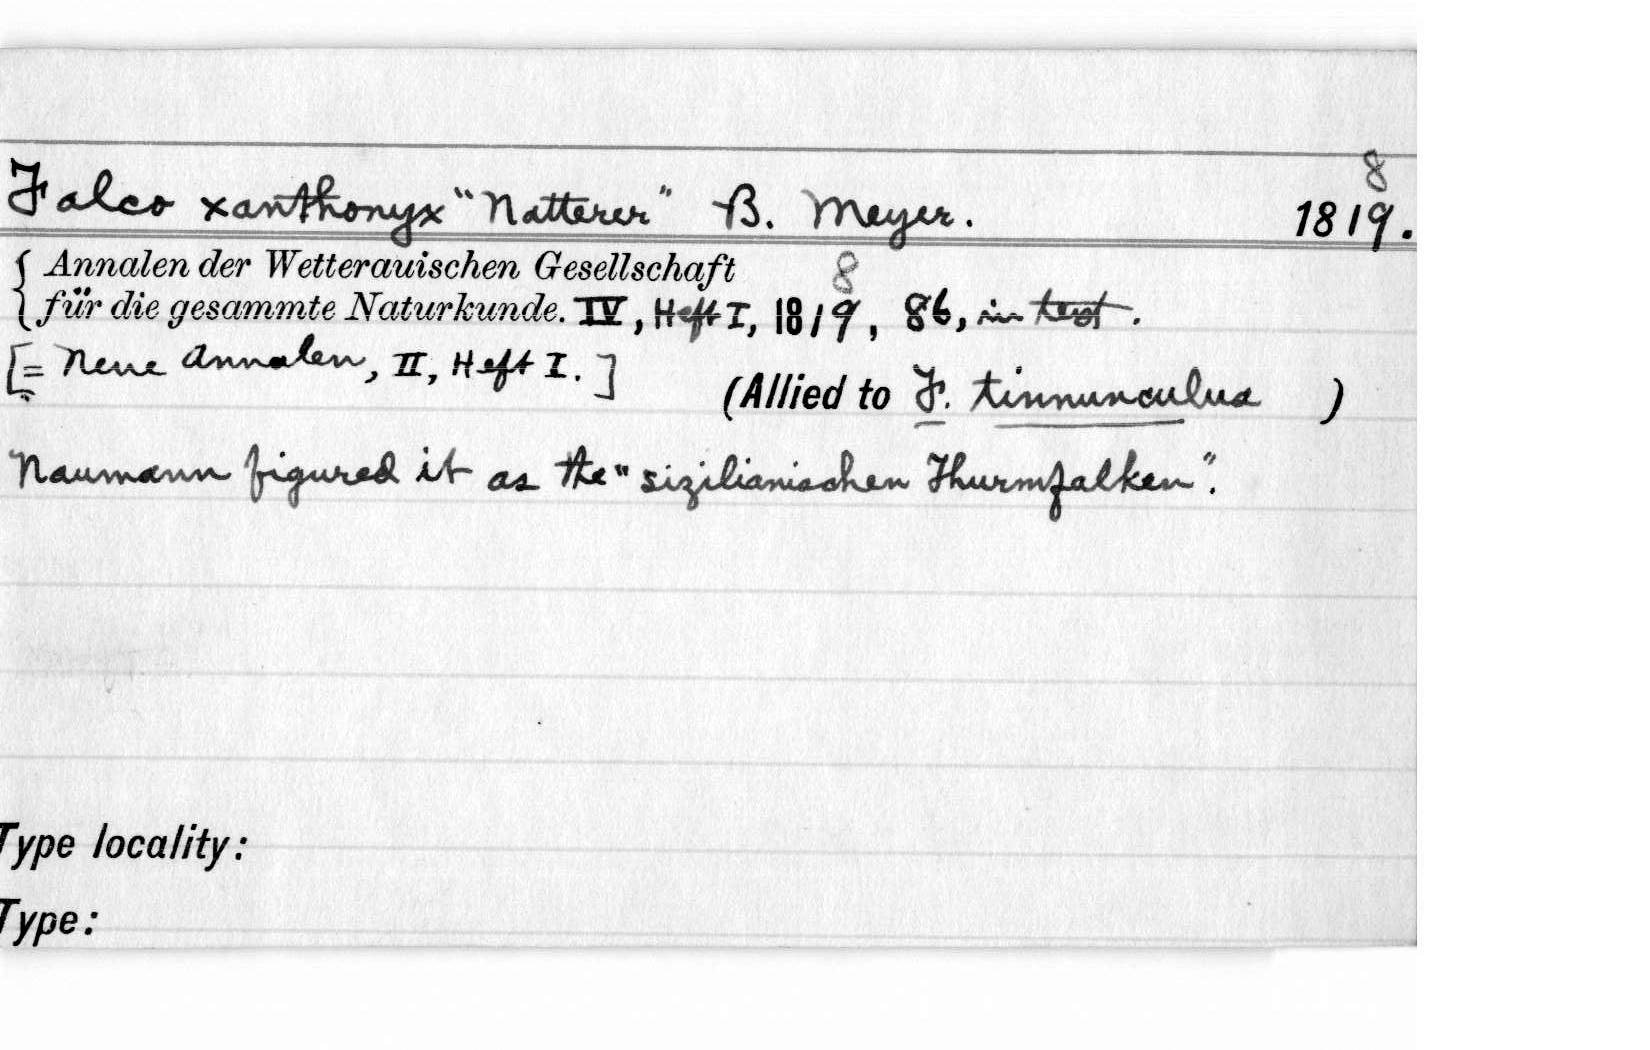 8
Falco xanthonyx "Natterer" B. Meyer. 1819.
{ Annalen der Wetterauischen Gesellschaft 8
für die gesammte Naturkunde. IV, Heft I, 1819, 86, in text.
[= Neue Annalen, II, Heft I.]
(Allied to F. tinnunculus )
Naumann figured it as the "sizilianischen Thurmfalken".
Type locality:
Type: